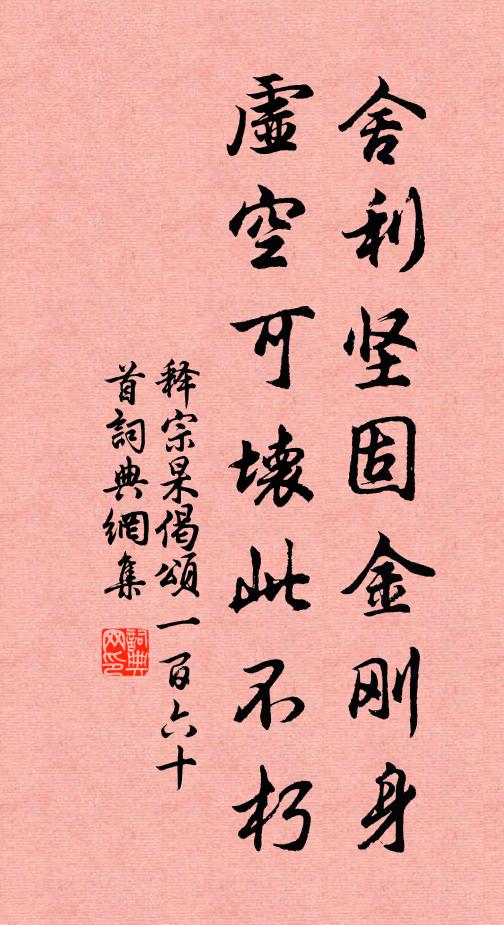 舍利坚固金刚身
虚空可壊此不朽
释宗杲偈頌一百六十
首詞典網集
詞典网印